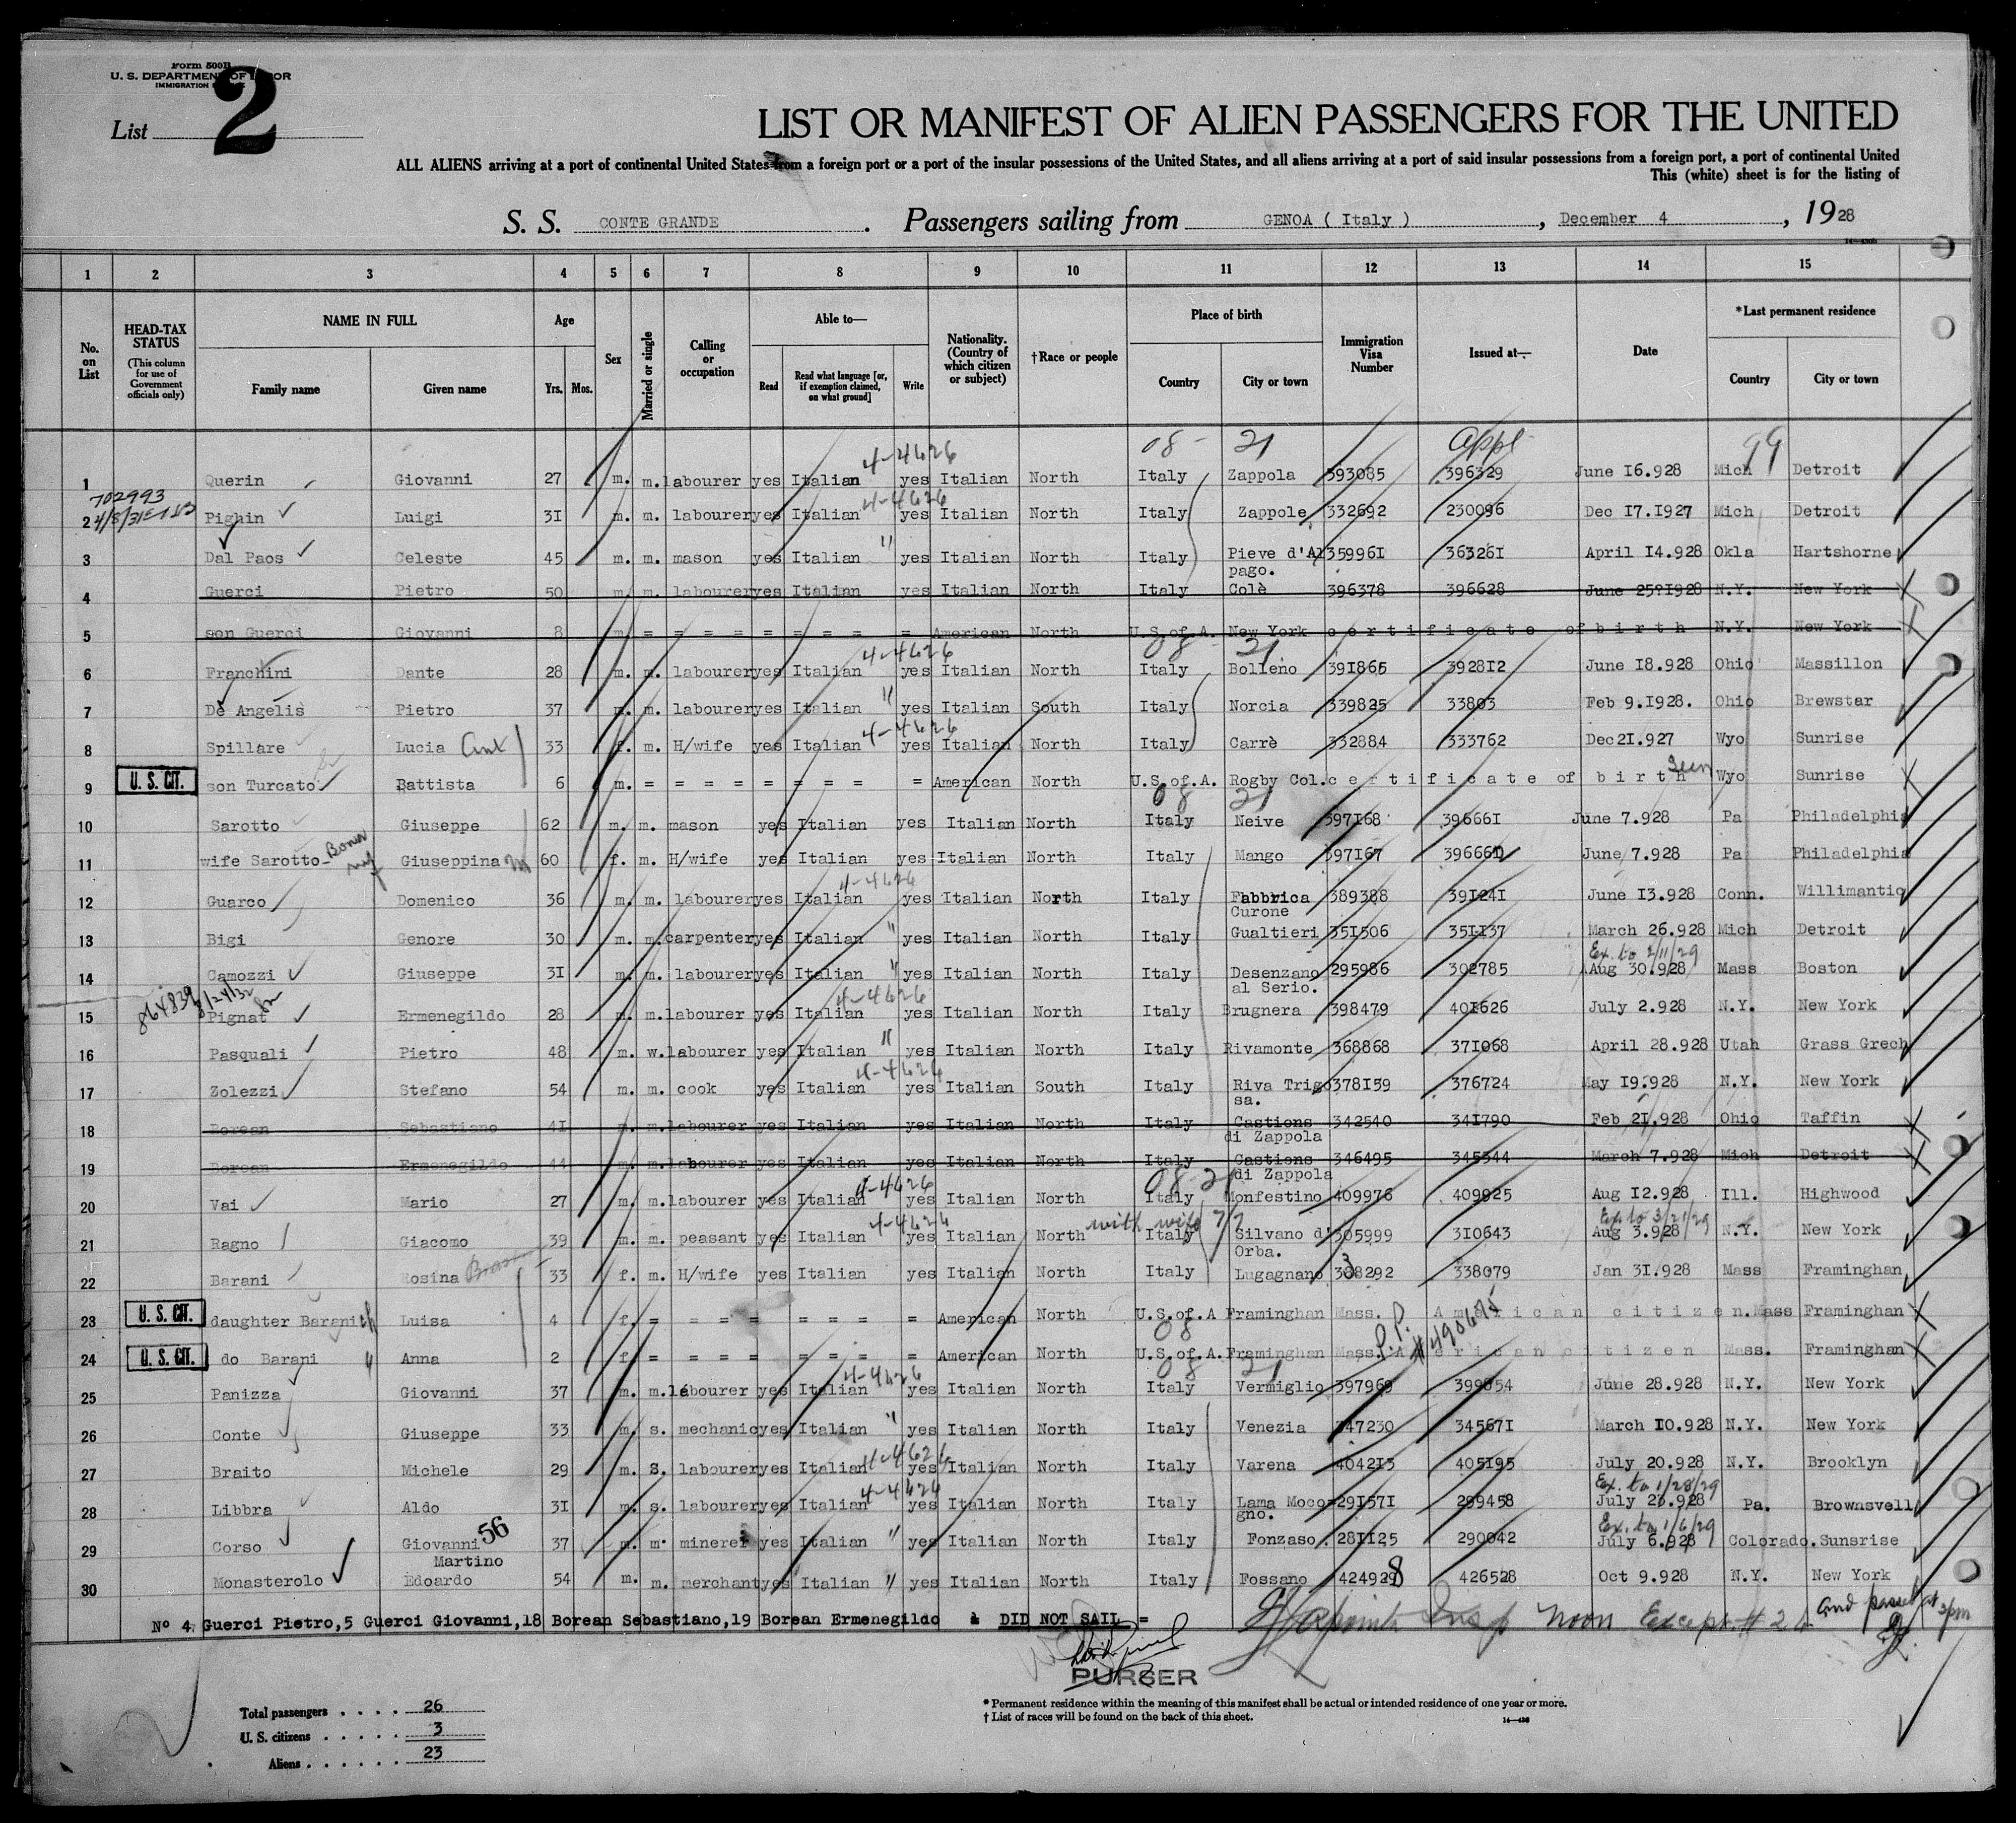 Form 500B
U. S. DEPARTMENT OF LABOR
IMMIGRATION
List 2
LIST OR MANIFEST OF ALIEN PASSENGERS FOR THE UNITED
ALL ALIENS arriving at a port of continental United States from a foreign port or a port of the insular possessions of the United States, and all aliens arriving at a port of said insular possessions from a foreign port, a port of continental United
This (white) sheet is for the listing of
S. S. CONTE GRANDE . Passengers sailing from GENOA ( Italy ) , December 4 , 1928
1 2 3 4 5 6 7 8 9 10 11 12 13 14 15
No. on List
HEAD-TAX STATUS (This column for use of Government officials only)
NAME IN FULL Family name Given name
Age Yrs. Mos.
Sex
Married or single
Calling or occupation
Able to— Read Read what language [or, if exemption claimed, on what ground] Write
Nationality. (Country of which citizen or subject)
†Race or people
Place of birth Country City or town
Immigration Visa Number
Issued at—
Date
*Last permanent residence Country City or town
08 - 21 appl 99
1 Querin Giovanni 27 m. m. labourer yes Italian 4-4626 yes Italian North Italy Zappola 393085 396329 June 16.928 Mich Detroit
702993
2 Pighin Luigi 31 m. m. labourer yes Italian 4-4626 yes Italian North Italy Zappole 332692 230096 Dec 17.1927 Mich Detroit
3 Dal Paos Celeste 45 m. m. mason yes Italian " yes Italian North Italy Pieve d'Al pago. 359961 363261 April 14.928 Okla Hartshorne
4 Guerci Pietro 50 m. m. labourer yes Italian yes Italian North Italy Colè 396378 396628 June 25?1928 N.Y. New York
5 son Guerci Giovanni 8 m. = = = = = = = = American North U.S.of.A. New York certificate of birth N.Y. New York
08 21
6 Franchini Dante 28 m. m. labourer yes Italian 4-4626 yes Italian North Italy Bolleno 391865 392812 June 18.928 Ohio Massillon
7 De Angelis Pietro 37 m. m. labourer yes Italian " yes Italian South Italy Norcia 339825 33803 Feb 9.1928. Ohio Brewster
8 Spillare Lucia 33 f. m. H/wife yes Italian 4-4626 yes Italian North Italy Carrè 332884 333762 Dec 21.927 Wyo Sunrise
9 U. S. CIT. son Turcato Battista 6 m. = = = = = = = = American North U.S.of.A. Rogby Col. certificate of birth Seen Wyo Sunrise
08 21
10 Sarotto Giuseppe 62 m. m. mason yes Italian yes Italian North Italy Neive 397168 396661 June 7.928 Pa Philadelphia
11 wife Sarotto Giuseppina 60 f. m. H/wife yes Italian yes Italian North Italy Mango 397167 396660 June 7.928 Pa Philadelphia
12 Guarco Domenico 36 m. m. labourer yes Italian 4-4626 yes Italian North Italy Fabbrica Curone 389388 391241 June 13.928 Conn. Willimantic
13 Bigi Genore 30 m. m. carpenter yes Italian " yes Italian North Italy Gualtieri 351506 351137 March 26.928 Mich Detroit
Ex. to 2/11/29
14 Camozzi Giuseppe 31 m. m. labourer yes Italian " yes Italian North Italy Desenzano al Serio. 295986 302785 Aug 30.928 Mass Boston
864839 8/24/32
15 Pignat Ermenegildo 28 m. m. labourer yes Italian 4-4626 yes Italian North Italy Brugnera 398479 401626 July 2.928 N.Y. New York
16 Pasquali Pietro 48 m. w. labourer yes Italian " yes Italian North Italy Rivamonte 368868 371068 April 28.928 Utah Grass Grech
17 Zolezzi Stefano 54 m. m. cook yes Italian 4-4626 yes Italian South Italy Riva Trigo sa. 378159 376724 May 19.928 N.Y. New York
18 Borean Sebastiano 41 m. m. labourer yes Italian yes Italian North Italy Castions di Zappola 342540 341790 Feb 21.928 Ohio Taffin
19 Borean Ermenegildo 44 m. m. labourer yes Italian yes Italian North Italy Castions di Zappola 346495 345544 March 7.928 Mich Detroit
08 21
20 Vai Mario 27 m. m. labourer yes Italian 4-4626 yes Italian North Italy Monfestino 409976 409925 Aug 12.928 Ill. Highwood
with wife Ex to 3/21/29
21 Ragno Giacomo 39 m. m. peasant yes Italian 4-4626 yes Italian North Italy Silvano d' Orba. 305999 310643 Aug 3.928 N.Y. New York
22 Barani Rosina 33 f. m. H/wife yes Italian yes Italian North Italy Lugagnano 338292 338079 Jan 31.928 Mass Framinghan
23 U. S. CIT. daughter Barani Luisa 4 f. = = = = = = = = American North U.S.of.A Framinghan Mass. American citizen. Mass Framinghan
08 P.P. #490695
24 U. S. CIT. do Barani Anna 2 f. = = = = = = = = American North U.S.of.A. Framinghan Mass. American citizen Mass. Framinghan
08 21
25 Panizza Giovanni 37 m. m. labourer yes Italian 4-4626 yes Italian North Italy Vermiglio 397969 399854 June 28.928 N.Y. New York
26 Conte Giuseppe 33 m. s. mechanic yes Italian " yes Italian North Italy Venezia 347230 345671 March 10.928 N.Y. New York
27 Braito Michele 29 m. S. labourer yes Italian 4-4626 yes Italian North Italy Varena 404215 405195 July 20.928 N.Y. Brooklyn
Ex. to 1/28/29
28 Libbra Aldo 31 m. s. labourer yes Italian 4-4626 yes Italian North Italy Lama Moco= gno. 291571 299458 July 26.928 Pa. Brownsvell
Ex. to 1/6/29
29 Corso Giovanni Martino 56 37 m. m. miner yes Italian " yes Italian North Italy Fonzaso. 281125 290042 July 6.928 Colorado. Sunsrise
30 Monasterolo Edoardo 54 m. m. merchant yes Italian " yes Italian North Italy Fossano 424928 426528 Oct 9.928 N.Y. New York
No 4. Guerci Pietro, 5 Guerci Giovanni, 18 Borean Sebastiano, 19 Borean Ermenegildo & DID NOT SAIL =
noon Except # 26 and passed at 3pm
PURSER
Total passengers . . . . 26
U. S. citizens . . . . . 3
Aliens . . . . . . 23
* Permanent residence within the meaning of this manifest shall be actual or intended residence of one year or more.
† List of races will be found on the back of this sheet.